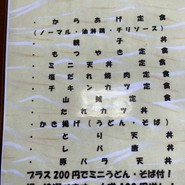 ・からあげ定食
(ノーマル・油淋鶏・チリソース)
・親子丼
・もつやき定食
・ミニ天丼定食
・塩だれ焼肉定食
・チキンカツ定食
・山賊定食
・たれカツ丼
・かき揚げ(うどん・そば)
・とり天丼
・レバ唐丼
・豚バラ天丼
プラス200円でミニうどん・そば付!